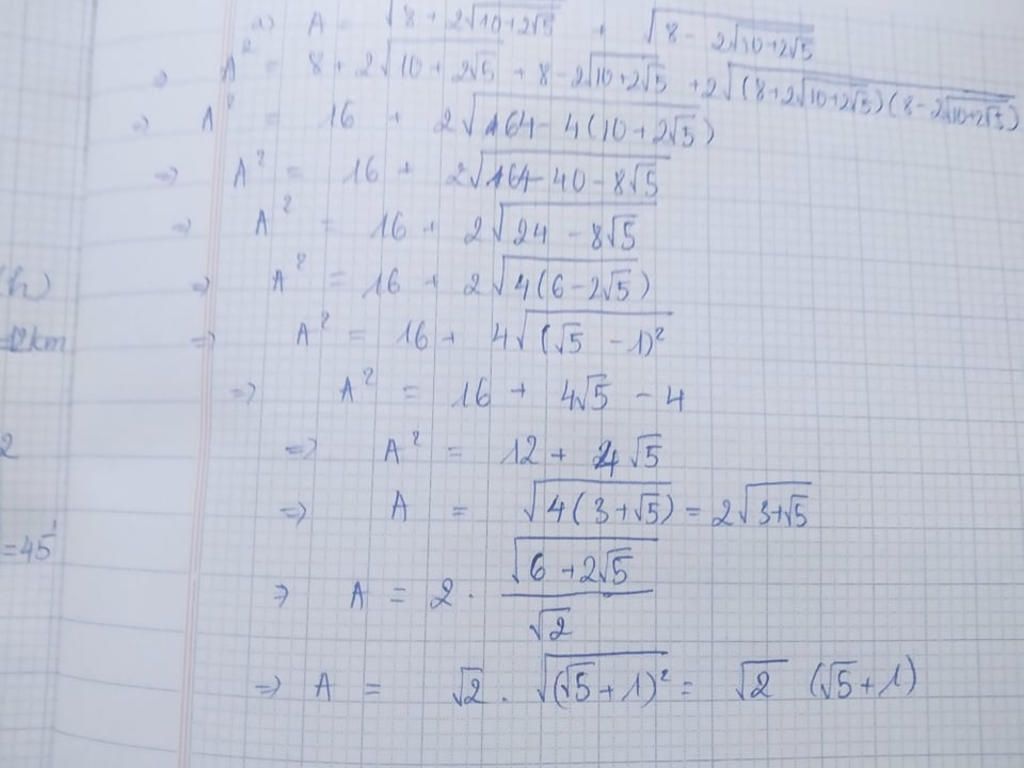 a) A = √(8 + 2√(10 + 2√5)) + √(8 - 2√(10+2√5))
⇒ A² = 8 + 2√(10 + 2√5) + 8 - 2√(10+2√5) + 2√((8+2√(10+2√5))(8-2√(10+2√5)))
⇒ A² = 16 + 2√(64 - 4(10 + 2√5))
⇒ A² = 16 + 2√(64 - 40 - 8√5)
⇒ A² = 16 + 2√(24 - 8√5)
(h) ⇒ A² = 16 + 2√(4(6 - 2√5))
km ⇒ A² = 16 + 4√((√5 - 1)²)
⇒ A² = 16 + 4√5 - 4
2 ⇒ A² = 12 + 4√5
⇒ A = √(4(3+√5)) = 2√(3+√5)
=45'
⇒ A = 2 . √(6 + 2√5) / √2
⇒ A = √2 . √((√5+1)²) = √2 (√5+1)